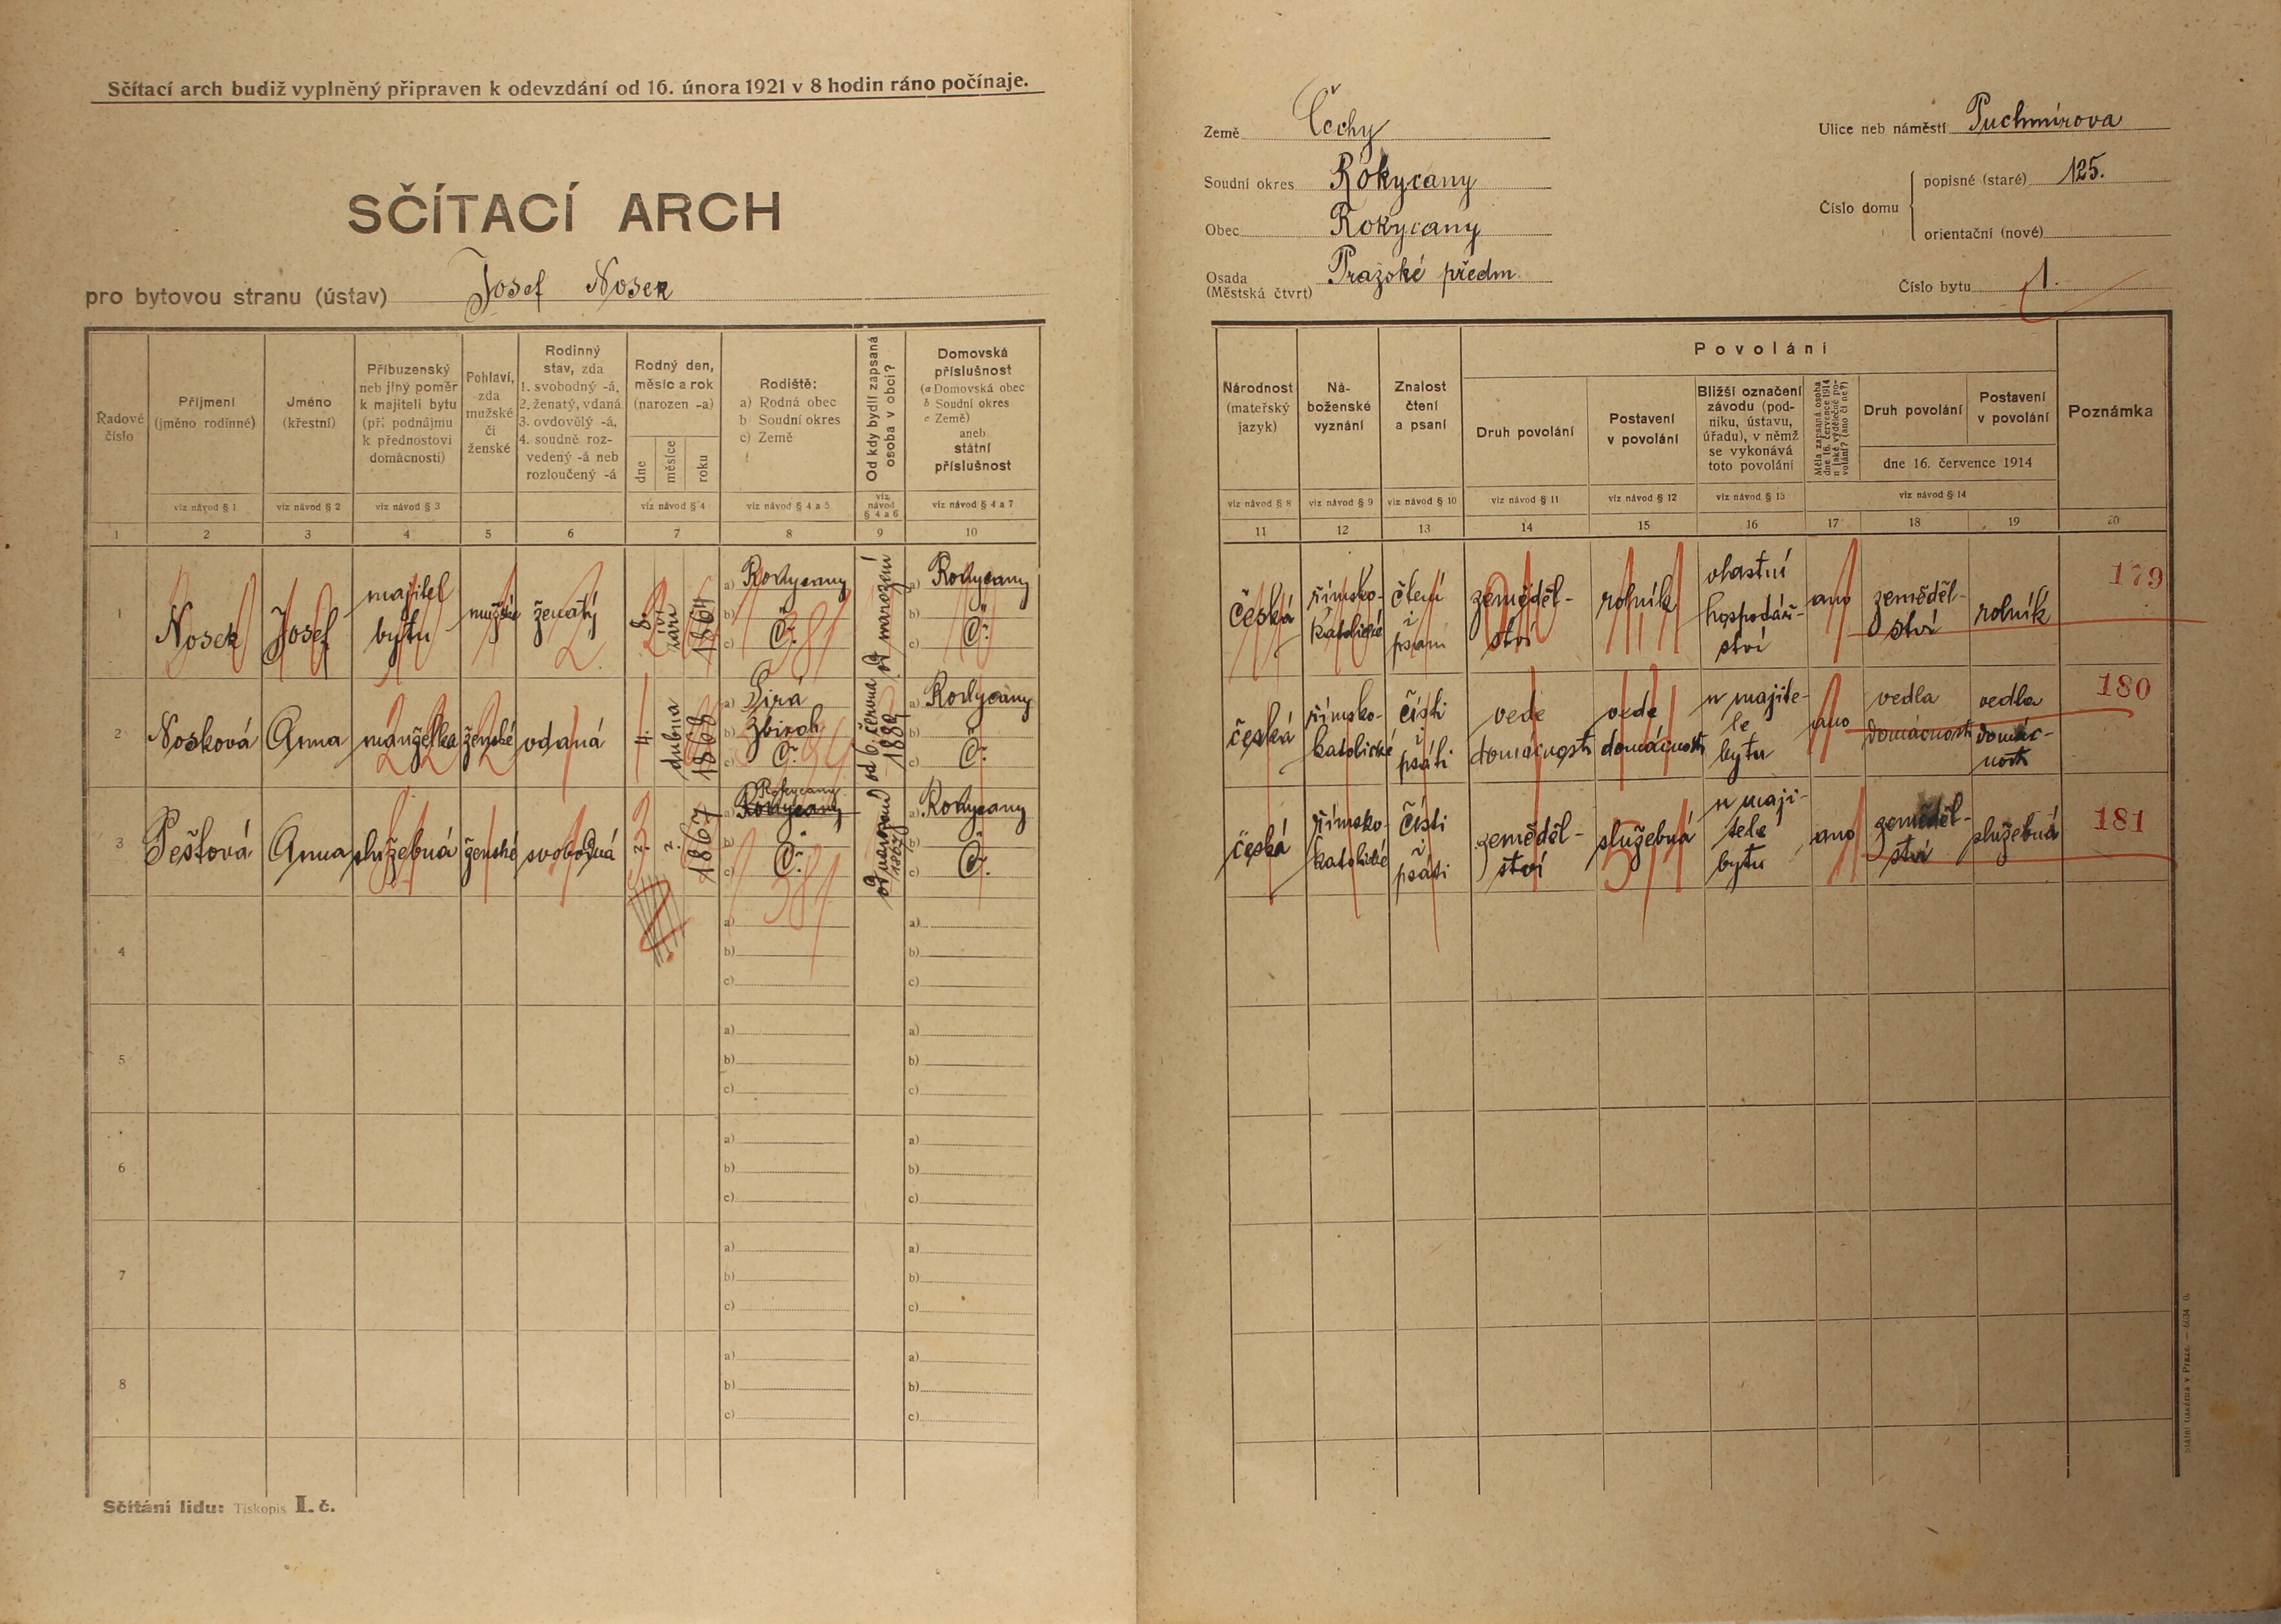 Sčítací arch budiž vyplněný připraven k odevzdání od 16. února 1921 v 8 hodin ráno počínaje.
SČÍTACÍ ARCH
pro bytovou stranu (ústav) Josef Nosek
Země Čechy
Soudní okres Rokycany
Obec Rokycany
Osada
(Městská čtvrt) Pražské předm.
Ulice neb náměstí Puchmírova
Číslo domu
popisné (staré) 125.
orientační (nové)
Číslo bytu 1.
Řadové
číslo
Příjmení
(jméno rodinné)
Jméno
(křestní)
Příbuzenský
neb jiný poměr
k majiteli bytu
(při podnájmu
k přednostovi
domácnosti)
Pohlaví,
zda
mužské
či
ženské
Rodinný
stav, zda
1. svobodný -á,
2. ženatý, vdaná
3. ovdovělý -á,
4. soudně roz-
vedený -á neb
rozloučený -á
Rodný den,
měsíc a rok
(narozen -a)
dne
měsíce
roku
Rodiště:
a) Rodná obec
b Soudní okres
c) Země
Od kdy bydlí zapsaná
osoba v obci?
Domovská
příslušnost
(a Domovská obec
b Soudní okres
c Země)
aneb
státní
příslušnost
viz návod § 1
viz návod § 2
viz návod § 3
viz návod § 4
viz návod § 4 a 5
viz
návod
§ 4 a 6
viz návod § 4 a 7
1 2 3 4 5 6 7 8 9 10
Národnost
(mateřský
jazyk)
Ná-
boženské
vyznání
Znalost
čtení
a psaní
Povolání
Druh povolání
Postavení
v povolání
Bližší označení
závodu (pod-
niku, ústavu,
úřadu), v němž
se vykonává
toto povolání
Měla zapsaná osoba
dne 16. července 1914
nějaké výdělečné po-
volání? (ano či ne?)
Druh povolání
Postavení
v povolání
dne 16. července 1914
Poznámka
viz návod § 8
viz návod § 9
viz návod § 10
viz návod § 11
viz návod § 12
viz návod § 13
viz návod § 14
11 12 13 14 15 16 17 18 19 20
1
Nosek
Josef
majitel
bytu
mužské
ženatý
8.
září
1864
a) Rokycany
b)
c) Č.
od narození
a) Rokycany
b)
c) Č.
česká
římsko-
katolické
čtení
i
psaní
zeměděl-
ství
rolník
vlastní
hospodář-
ství
ano
zeměděl-
ství
rolník
179
2
Nosková
Anna
manželka
ženské
vdaná
4.
dubna
1868
a) Sirá
b) Zbiroh
c) Č.
od 6. června
1889
a) Rokycany
b)
c) Č.
česká
římsko-
katolické
čísti
i
psáti
vede
domácnost
vede
domácnost
u majite-
le
bytu
ano
vedla
domácnost
vedla
domác-
nost
180
3
Pešlová
Anna
služebná
ženské
svobodná
2.
2.
1867
Rokycany
a) Rokycany
b)
c) Č.
od narození
1867
a) Rokycany
b)
c) Č.
česká
římsko-
katolické
čísti
i
psáti
zeměděl-
ství
služebná
u maji-
tele
bytu
ano
zeměděl-
ství
služebná
181
4
a)
b)
c)
a)
b)
c)
5
a)
b)
c)
a)
b)
c)
6
a)
b)
c)
a)
b)
c)
7
a)
b)
c)
a)
b)
c)
8
a)
b)
c)
a)
b)
c)
Sčítání lidu: Tiskopis I. č.
Státní tiskárna v Praze.